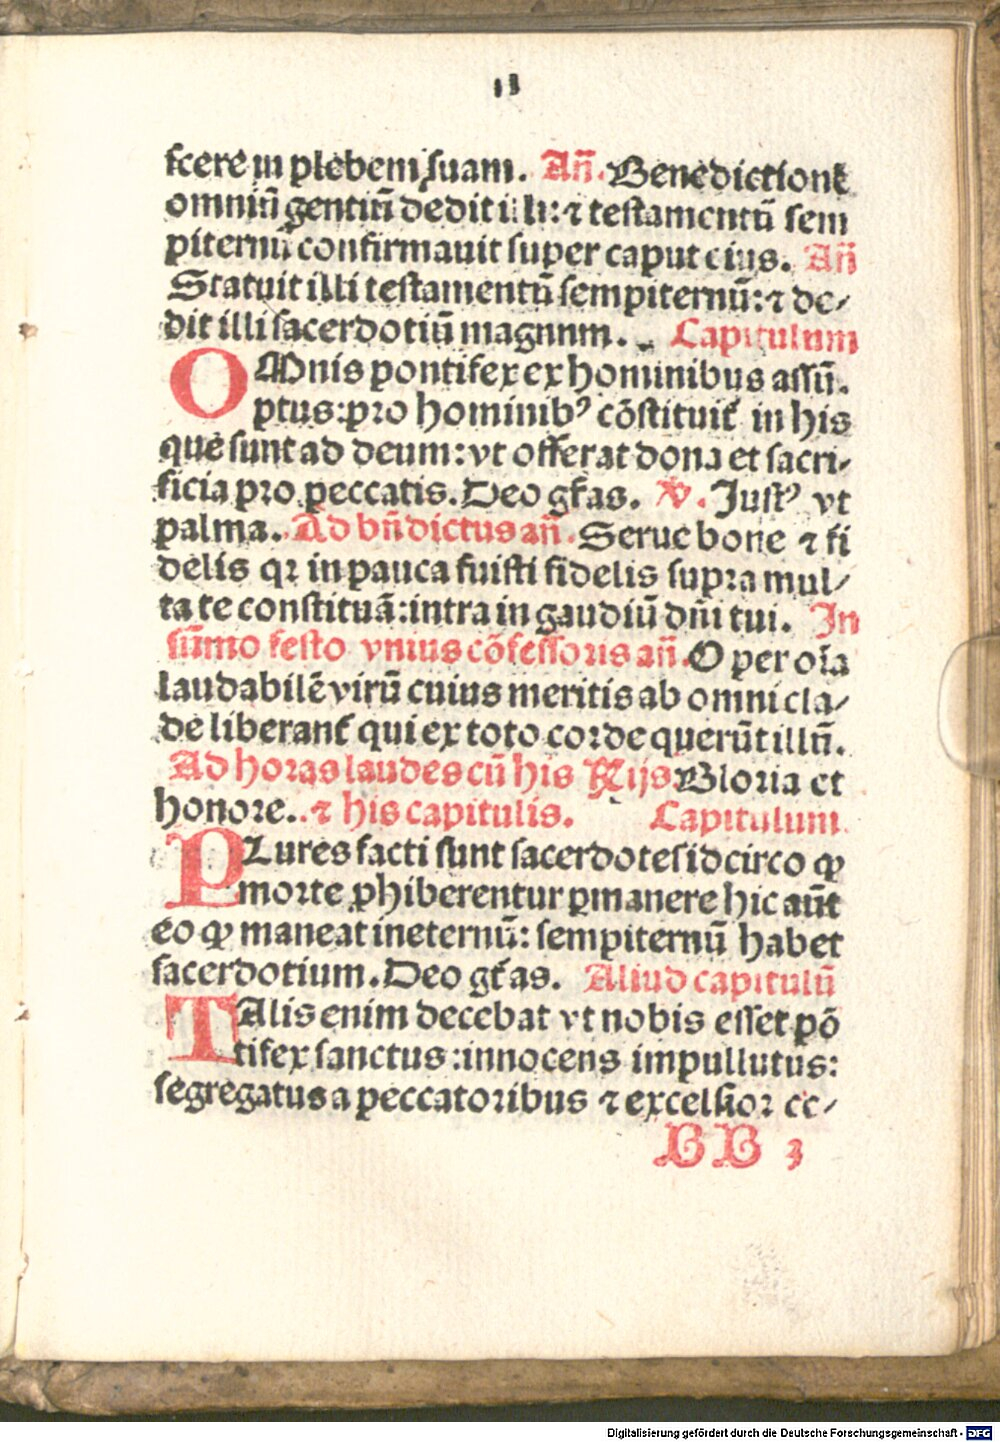 13
scere in plebem suam. Añ. Benedictionē
omniū gentiū dedit illi: ⁊ testamentū sem
piternū confirmauit super caput eius. Añ
Statuit illi testamentū sempiternū: ⁊ de⸗
dit illi sacerdotiū magnnm. Capitulum
OMnis pontifex ex hominibus assū.
ptus: pro hominibꝰ cōstituit᷑ in his
que sunt ad deum: vt offerat dona et sacri⸗
ficia pro peccatis. Deo gr̄as. ℣. Justꝰ vt
palma. Ad bn̄dictus añ. Serue bone ⁊ fi
delis qꝛ in pauca fuisti fidelis supra mul⸗
ta te constituā: intra in gaudiū dn̄i tui. In
sūmo festo vnius cōfessoris añ. O per oīa
laudabilē virū cuius meritis ab omni cla⸗
de liberant᷑ qui ex toto corde querūt illū.
Ad horas laudes cū his Rijs. Gloria et
honore. ⁊ his capitulis. Capitulum.
PLures facti sunt sacerdotes idcirco ꝙ
morte ꝓhiberentur ꝑmanere hic aūt
eo ꝙ maneat ineternū: sempiternū habet
sacerdotium. Deo gr̄as. Aliud capitulū
TAlis enim decebat vt nobis esset pō
tifex sanctus: innocens impullutus:
segregatus a peccatoribus ⁊ excelsior ce⸗
BB 3
Digitalisierung gefördert durch die Deutsche Forschungsgemeinschaft - DFG